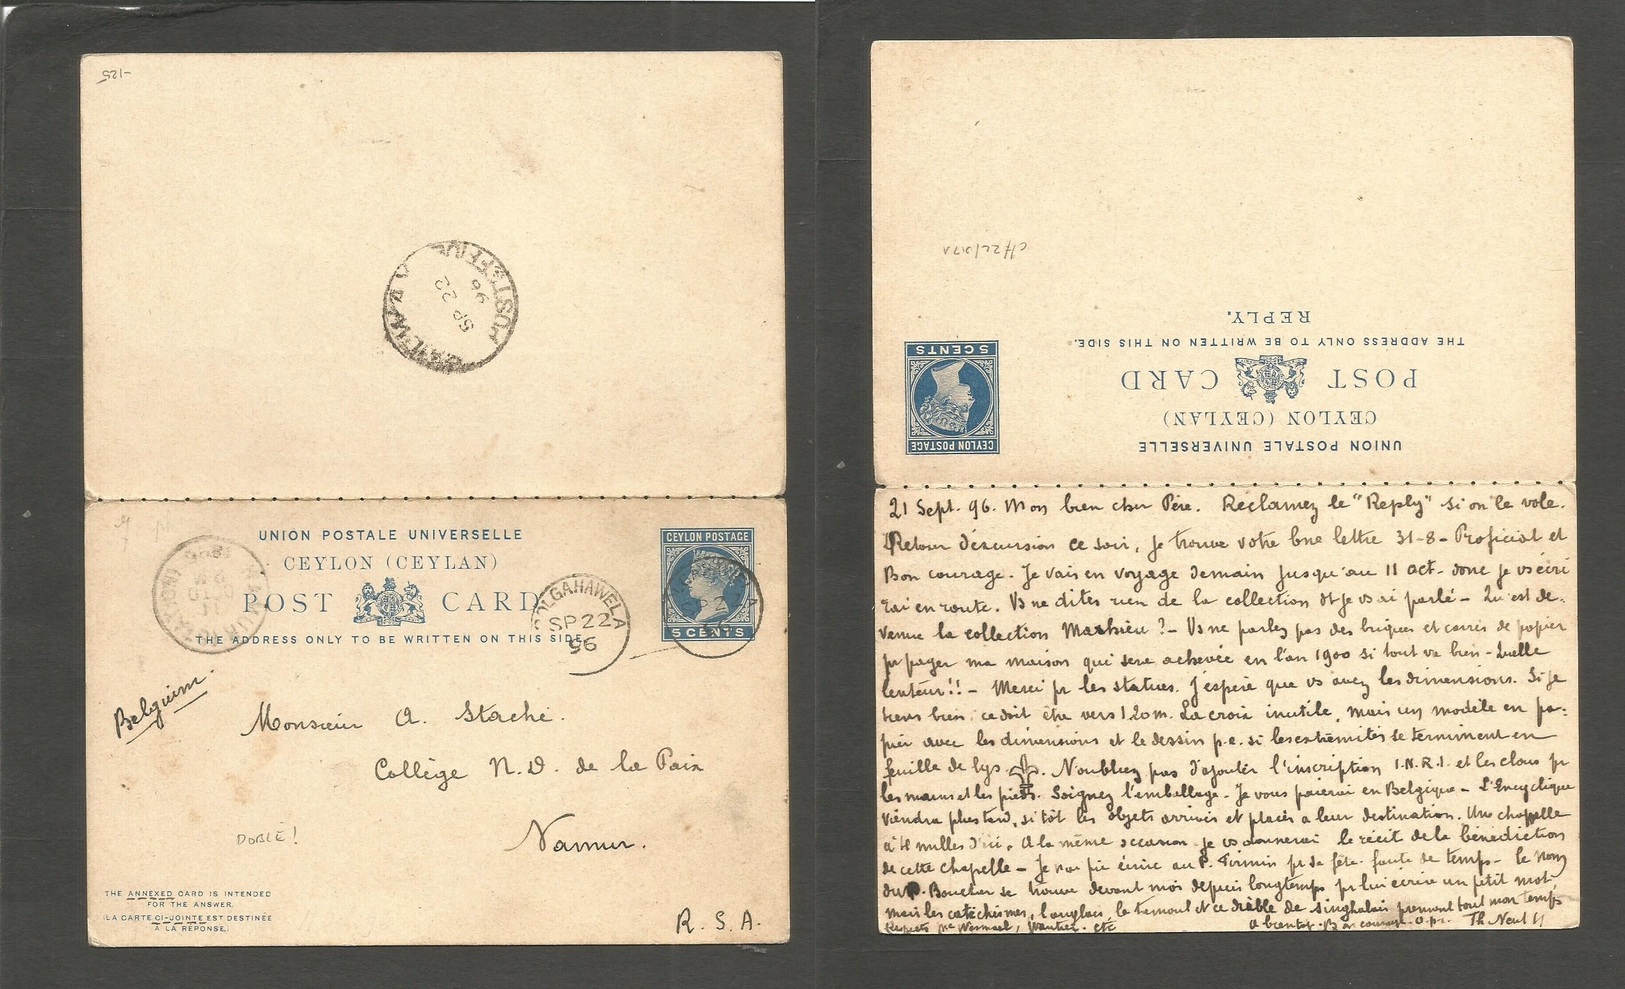 -125
POSTE RESTANTE
SP 22
96
UNION POSTALE UNIVERSELLE
CEYLON (CEYLAN)
POST CARD
THE ADDRESS ONLY TO BE WRITTEN ON THIS SIDE.
CEYLON POSTAGE
5 CENTS
POLGAHAWELA
SP 22
96
Belgium.
Monsieur A. Staché.
Collège N.D. de la Paix
Namur.
DOBLE!
THE ANNEXED CARD IS INTENDED
FOR THE ANSWER.
(LA CARTE CI-JOINTE EST DESTINÉE
À LA RÉPONSE.)
R.S.A.
UNION POSTALE UNIVERSELLE
CEYLON (CEYLAN)
POST CARD
THE ADDRESS ONLY TO BE WRITTEN ON THIS SIDE.
REPLY.
CEYLON POSTAGE
5 CENTS
21 Sept. 96. Mon bien cher Père. Réclamez le "Reply" si on le vole.
Retour d'excursion ce soir, je trouve votre bne lettre 31-8 - Proficiat et
Bon courage. Je vais en voyage demain jusqu'au 11 oct - donc je vs écri
rai en route. Vs ne dites rien de la collection dt je vs ai parlé - Qu'est de-
venue la collection Mathieu? - Vs ne parlez pas des briques et carrés de papier
pr payer ma maison qui sera achevée en l'an 1900 si tout va bien - Quelle
lenteur!! - Merci pr les statues. J'espère que vs avez les dimensions. Si je
tiens bien, ce doit être vers 1.20 m. La croix inutile, mais un modèle en pa-
pier avec les dimensions et le dessin p.e. si les extrémités se terminent en
feuille de lys. N'oubliez pas d'ajouter l'inscription I.N.R.I. et les clous pr
les mains et les pieds. Soignez l'emballage - Je vous paierai en Belgique - L'Encyclique
viendra plus tard, sitôt les objets arrivés et placés à leur destination. Une chapelle
à 4 milles d'ici. A la même occasion je vs donnerai le récit de la bénédiction
de cette chapelle - Je n'ai pu écrire au P. Firmin pr sa fête faute de temps - le nom
du P. Boucher se trouve devant moi depuis longtemps pr lui écrire un petit mot,
mais les catéchismes, l'anglais, le et ce diable de singhalais prennent tout mon temps
Respects etc A bientôt. courage